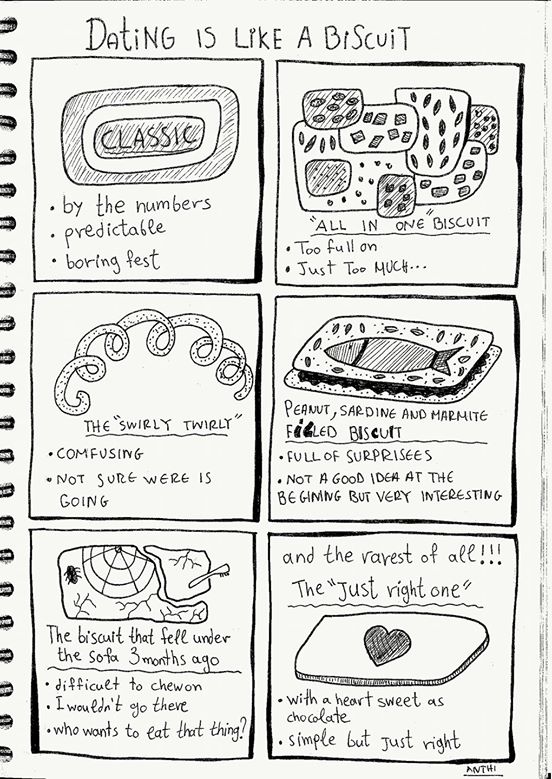 DATING IS LIKE A BISCUIT
CLASSIC
• by the numbers
• predictable
• boring fest
"ALL IN ONE" BISCUIT
• Too full on
• Just Too MUCH...
THE "SWIRLY TWIRLY"
• COMFUSING
• NOT SURE WERE IS
GOING
PEANUT, SARDINE AND MARMITE
FILLED BISCUIT
• FULL OF SURPRISEES
• NOT A GOOD IDEA AT THE
BEGINING BUT VERY INTERESTING
The biscuit that fell under
the sofa 3 months ago
• difficult to chewon
• I wouldn't go there
• who wants to eat that thing?
and the rarest of all!!!
The "Just right one"
• with a heart sweet as
chocolate
• simple but just right
ANTHI